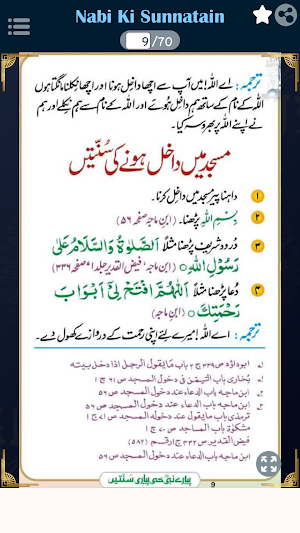 Nabi Ki Sunnatain
9/70
ترجمہ: اے اللہ! میں آپ سے اچھا داخل ہونا اور اچھا نکلنا مانگتا ہوں
اللہ کے نام کے ساتھ ہم داخل ہوئے اور اللہ کے نام سے ہم نکلے اور ہم
نے اپنے اللہ پر بھروسہ کیا۔
مسجد میں داخل ہونے کی سنّتیں
۱ داہنا پیر مسجد میں داخل کرنا۔
۲ بِسْمِ اللّٰهِ پڑھنا۔ (ابن ماجہ صفحہ ۵۶)
۳ درود شریف پڑھنا مثلاً اَلصَّلٰوةُ وَالسَّلَامُ عَلٰی
رَسُوْلِ اللّٰهِ (ابن ماجہ، فیض القدیر جلد ۱ صفحہ ۳۳۶)
۴ دعا پڑھنا مثلاً اَللّٰهُمَّ افْتَحْ لِیْ اَبْوَابَ
رَحْمَتِكَ (ابن ماجہ)
ترجمہ: اے اللہ! میرے لئے اپنی رحمت کے دروازے کھول دے۔
ابوداؤد ص ۳۳۹ ج ۲ باب مایقول الرجل اذا دخل بیته
بخاری باب التیمن فی دخول المسجد ص ۶۱ ج ۱
ابن ماجه باب الدعاء عند دخول المسجد ص ۵۶
ابن ماجه باب الدعاء عند دخول المسجد ص ۵۶
ترمذی باب مایقول عند دخوله المسجد ص ۷۱ ج ۱
مشکوٰة باب المساجد ص ۷۰ ج ۱
فیض القدیر ص ۳۳۲ ج ۱ رقم (۵۸۲)
ابن ماجه باب الدعاء عند دخول المسجد ص ۵۶
پیارے نبی کی پیاری سنتیں
9